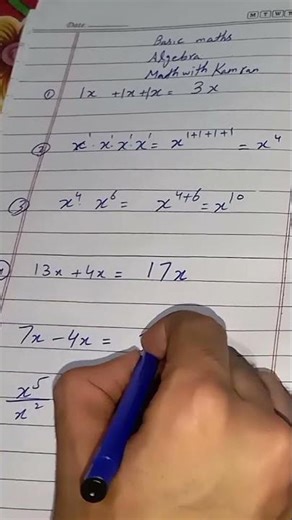 Date:
M T W
Basic maths
Algebra
Math with Kamran
① 1x + 1x + 1x = 3x
② x¹ · x¹ · x¹ · x¹ = x¹⁺¹⁺¹⁺¹ = x⁴
③ x⁴ · x⁶ = x⁴⁺⁶ = x¹⁰
13x + 4x = 17x
7x − 4x =
x⁵
x²